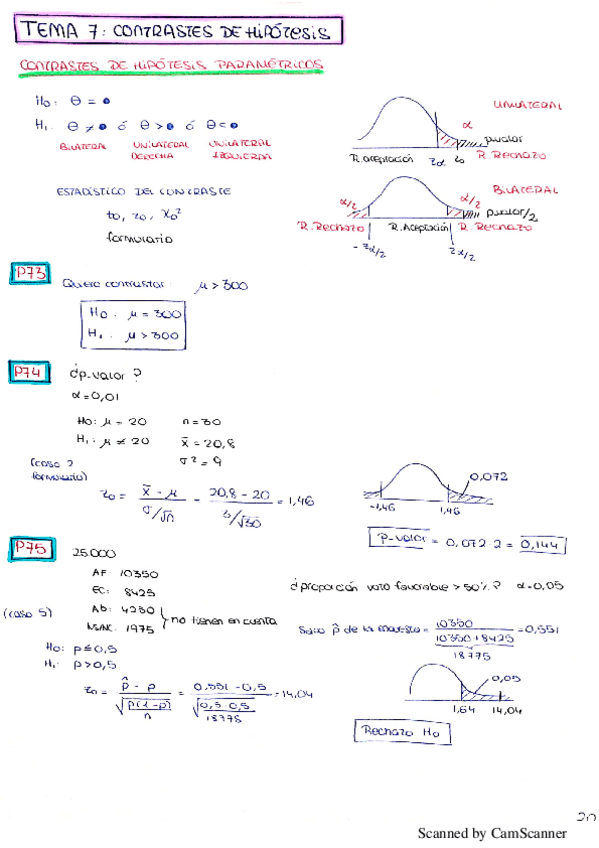 TEMA 7: CONTRASTES DE HIPÓTESIS
CONTRASTES DE HIPÓTESIS PARAMÉTRICOS
H0: θ = •
H1: θ ≠ • ó θ > • ó θ < •
BILATERAL UNILATERAL DERECHA UNILATERAL IZQUIERDA
UNILATERAL
α
pvalor
R. Aceptación zα z0 R. Rechazo
ESTADÍSTICO DEL CONTRASTE
t0, z0, χ0²
formulario
BILATERAL
α/2 α/2 pvalor/2
R. Rechazo R. Aceptación R. Rechazo
- zα/2 zα/2
P73 Quiero contrastar: μ > 300
H0: μ = 300
H1: μ > 300
P74 ¿p-valor?
α = 0,01
H0: μ = 20 n = 30
H1: μ ≠ 20 x̄ = 20,8
σ² = 9
(caso 2 formulario)
z0 = x̄ - μ / σ/√n = 20,8 - 20 / 3/√30 = 1,46
0,072
-1,46 1,46
P-valor = 0,072·2 = 0,144
P75 25.000
AF: 10350
EC: 8425
Ab: 4250
NS/NC: 1975 } no tienen en cuenta
¿proporción voto favorable > 50%? α = 0,05
(caso 5)
Saco p̂ de la muestra = 10350 / 10350 + 8425 = 0,551
18775
H0: p ≤ 0,5
H1: p > 0,5
z0 = p̂ - p / √p(1-p)/n = 0,551 - 0,5 / √0,5·0,5/18775 = 14,04
0,05
1,64 14,04
Rechazo H0
20
Scanned by CamScanner